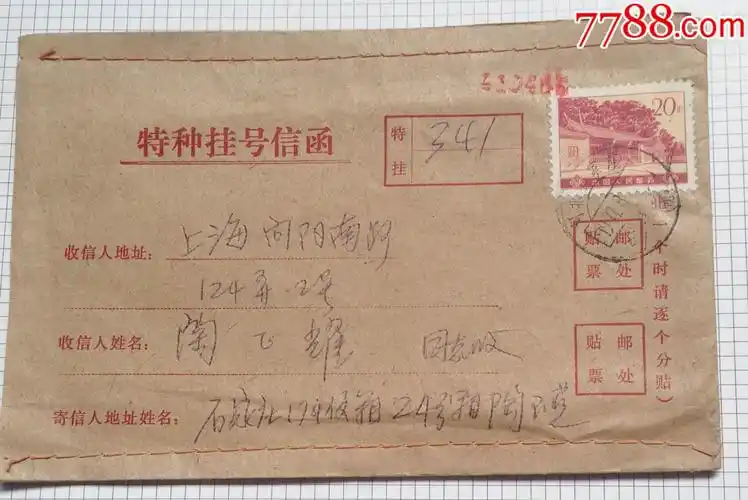 7788.com
20分
中国人民邮政
特种挂号信函
特挂
341
收信人地址：上海向阳南路
124弄2号
邮票贴处
收信人姓名：陶飞耀 同志收
邮票贴处
寄信人地址姓名：石家庄194信箱24号箱陶
个时请逐个分贴）